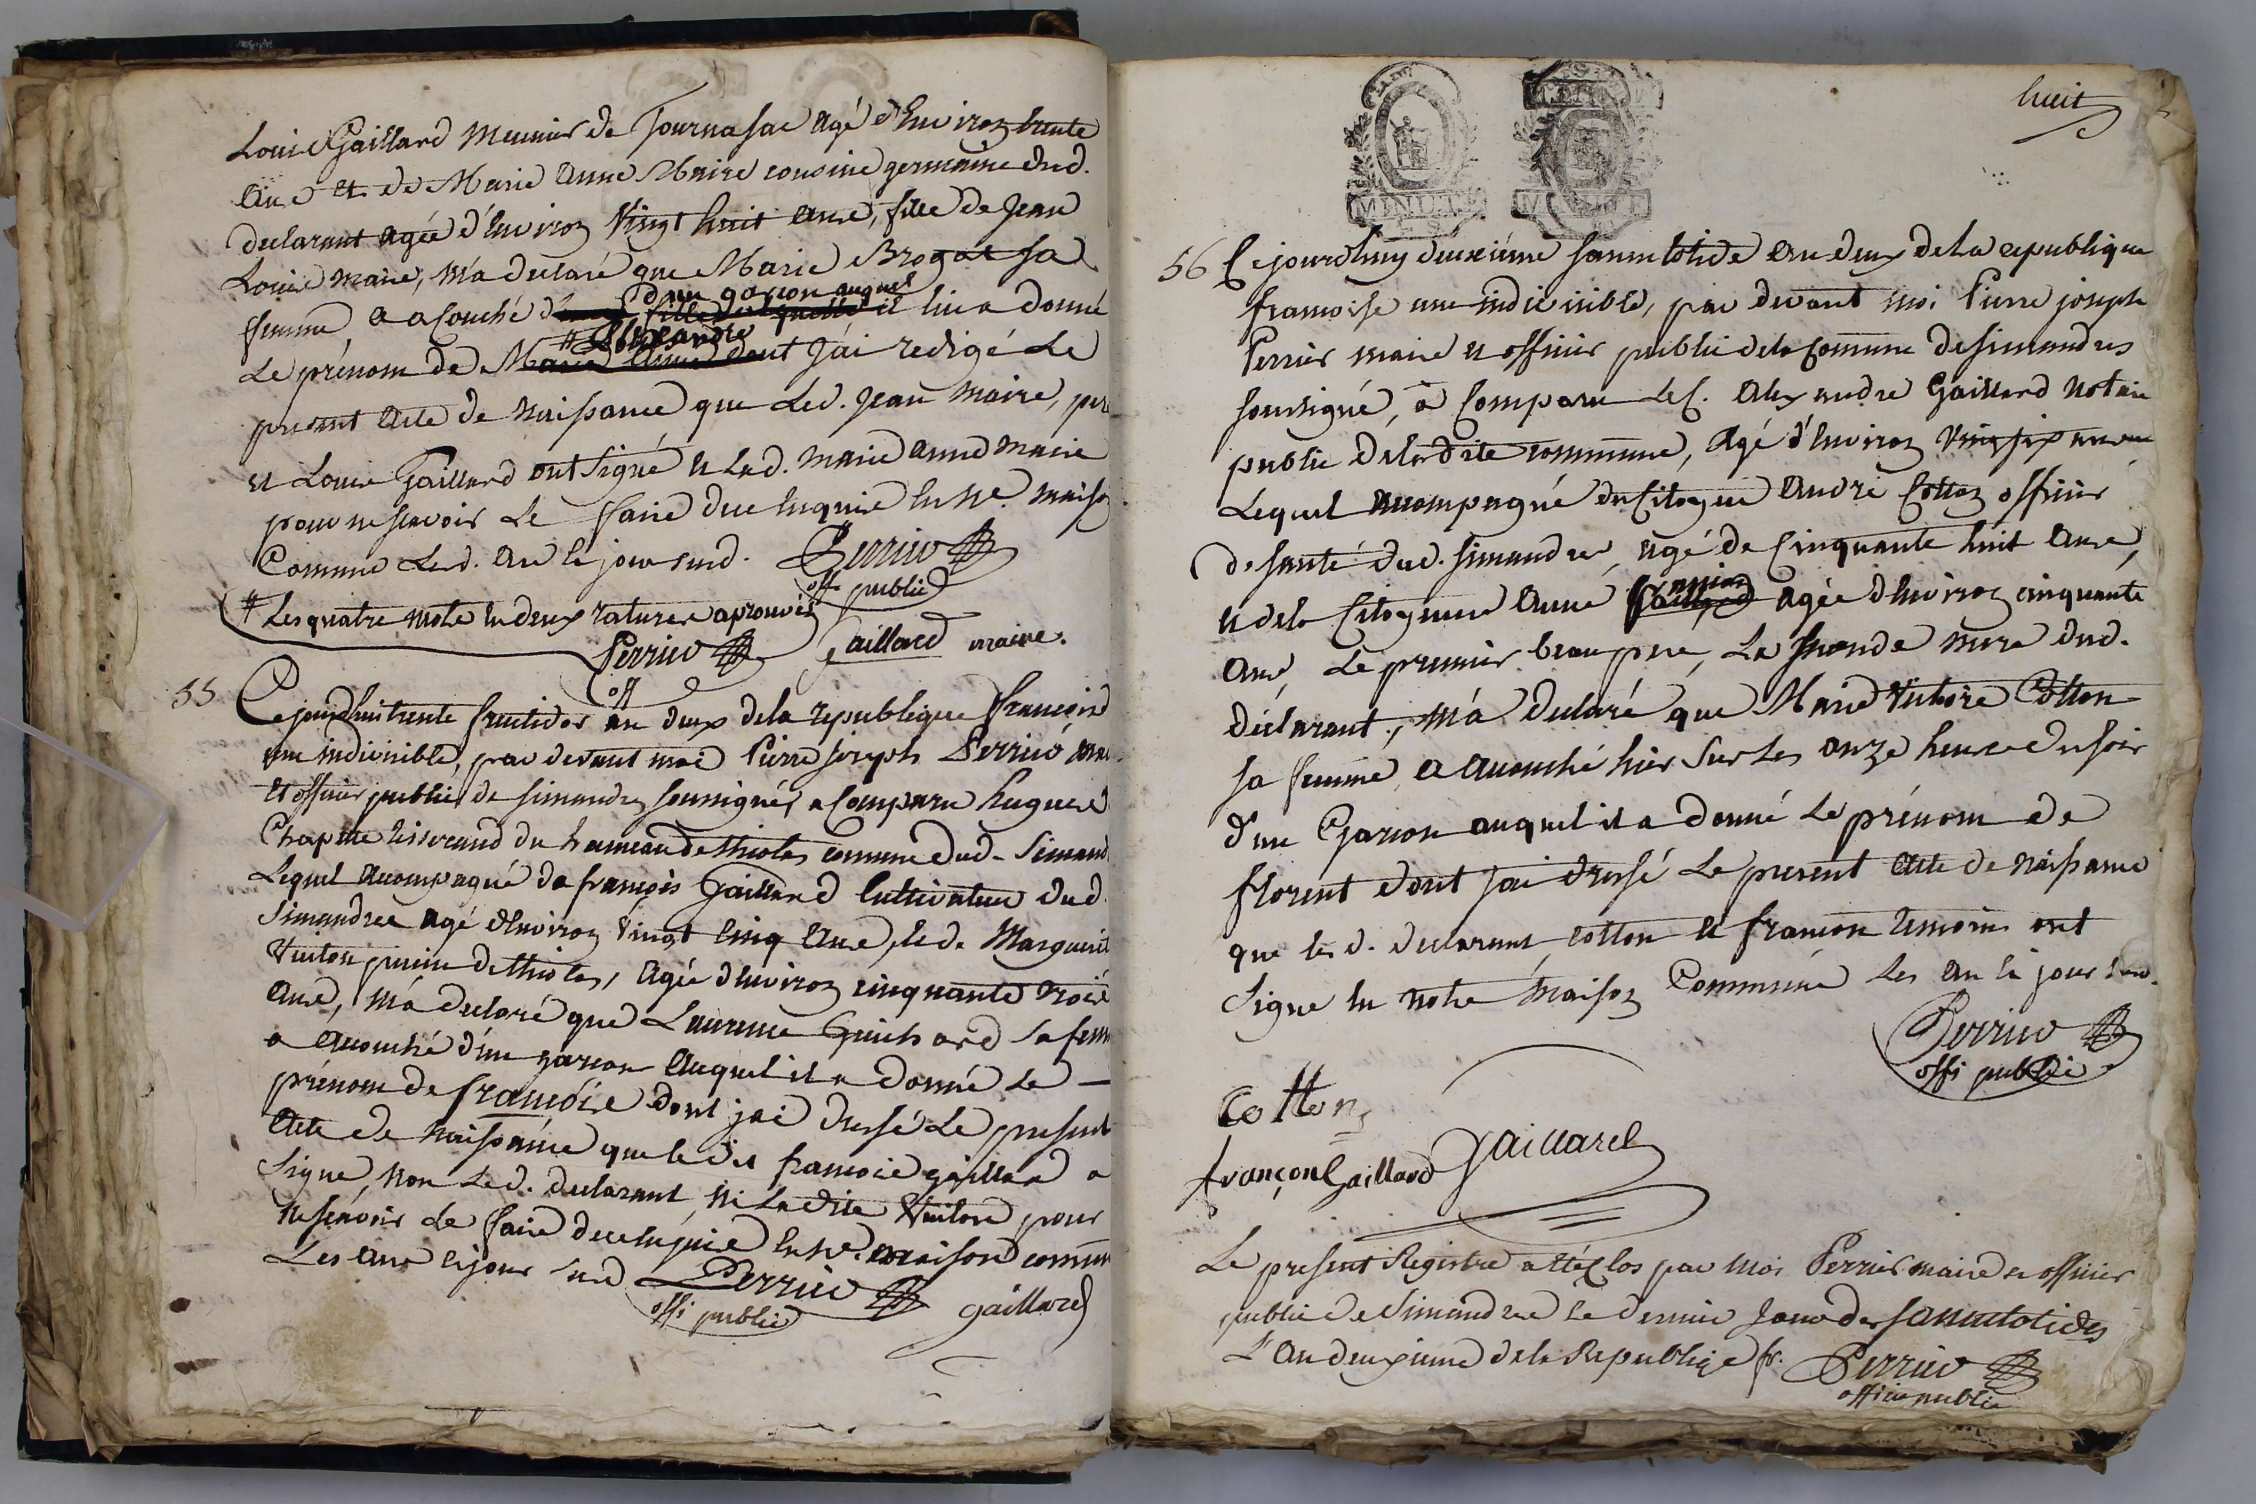 Louis Gaillard Meunier de Tournasac agé d'Environ trente
ans et de Marie Anne Maire cousine germaine dud.
declarant agée d'Environ Vingt huit ans, fille de Jean
Louis maire, m'a declaré que Marie Brogat sa
femme a acouché d'un garçon auquel il lui a donné
Le prénom de # Alexandre dont J'ai redigé Le
present acte de Naissance que Led. Jean Maire, pere
et Louis Gaillard ont Signé et Lad. Marie Anne Maire
pour ne scavoir Le faire de ce enquise en Ne. maison
Commune Lesd. an et jour susd. Perrier
off public
# Les quatre mots en deux ratures aprouvés
Perrier gaillard maire.
off
55 Cejourdhui trente fructidor an deux dela republique françoise
une indivisible, par devant moi Pierre joseph Perrier maire
et officier public de simandre soussigné, a comparu hugues
Chapitte tisserand du hameau de thioles commune dud. Simandre
Lequel accompagné de françois Gaillard Cultivateur dud.
Simandre agé d'Environ Vingt Cinq ans, et de Marguerite
Vuiton de thioles, agée d'environ cinquante trois
ans, m'a declaré que Laurence Guichard sa femme
a acouché d'un garcon auquel il a donné Le —
prénom de françois dont jai dressé Le present
acte de naissance que ledit françois gaillard a
Signé, non Led. declarant, ni Ladite Vuiton pour
ne scavoir Le faire de ce enquis en Ne. maison commune
Les ans et jour susd Perrier
offi public gaillard
huit
MINUTE
56 Cejourdhuy deuxième sanculotide an deux de la republique
françoise une indivisible, par devant moi Pierre joseph
Perrier maire et officier public dela Commune de simandres
soussigné, à Comparu Le C. Alexandre Gaillard Notaire
public de ladite commune, Agé d'Environ Vingt six ans
Lequel accompagné du Citoyen André Cotton officier
de santé dud. simandre, agé de Cinquante huit ans,
et dela Citoyenne Anne françon agée d'Environ cinquante
ans Le premier beau pere, La seconde mere dud.
déclarant, m'a declaré que Marie Victoire Cotton
sa femme a acouché hier sur les onze heures du soir
d'un Garçon auquel il a donné Le prénom de
florent dont jai dressé Le present acte de naissance
que les d. declarant, cotton et françon temoins ont
Signé en notre Maison Commune Les an et jour susd.
Perrier
offi public
Cotton
françon Gaillard Gaillard
Le present Registre a été Clos par moi Perrier maire et officier
public de Simandre Le dernier jour des Sanculotides
L'an deuxieme dela Republiqe fr. Perrier
officier public